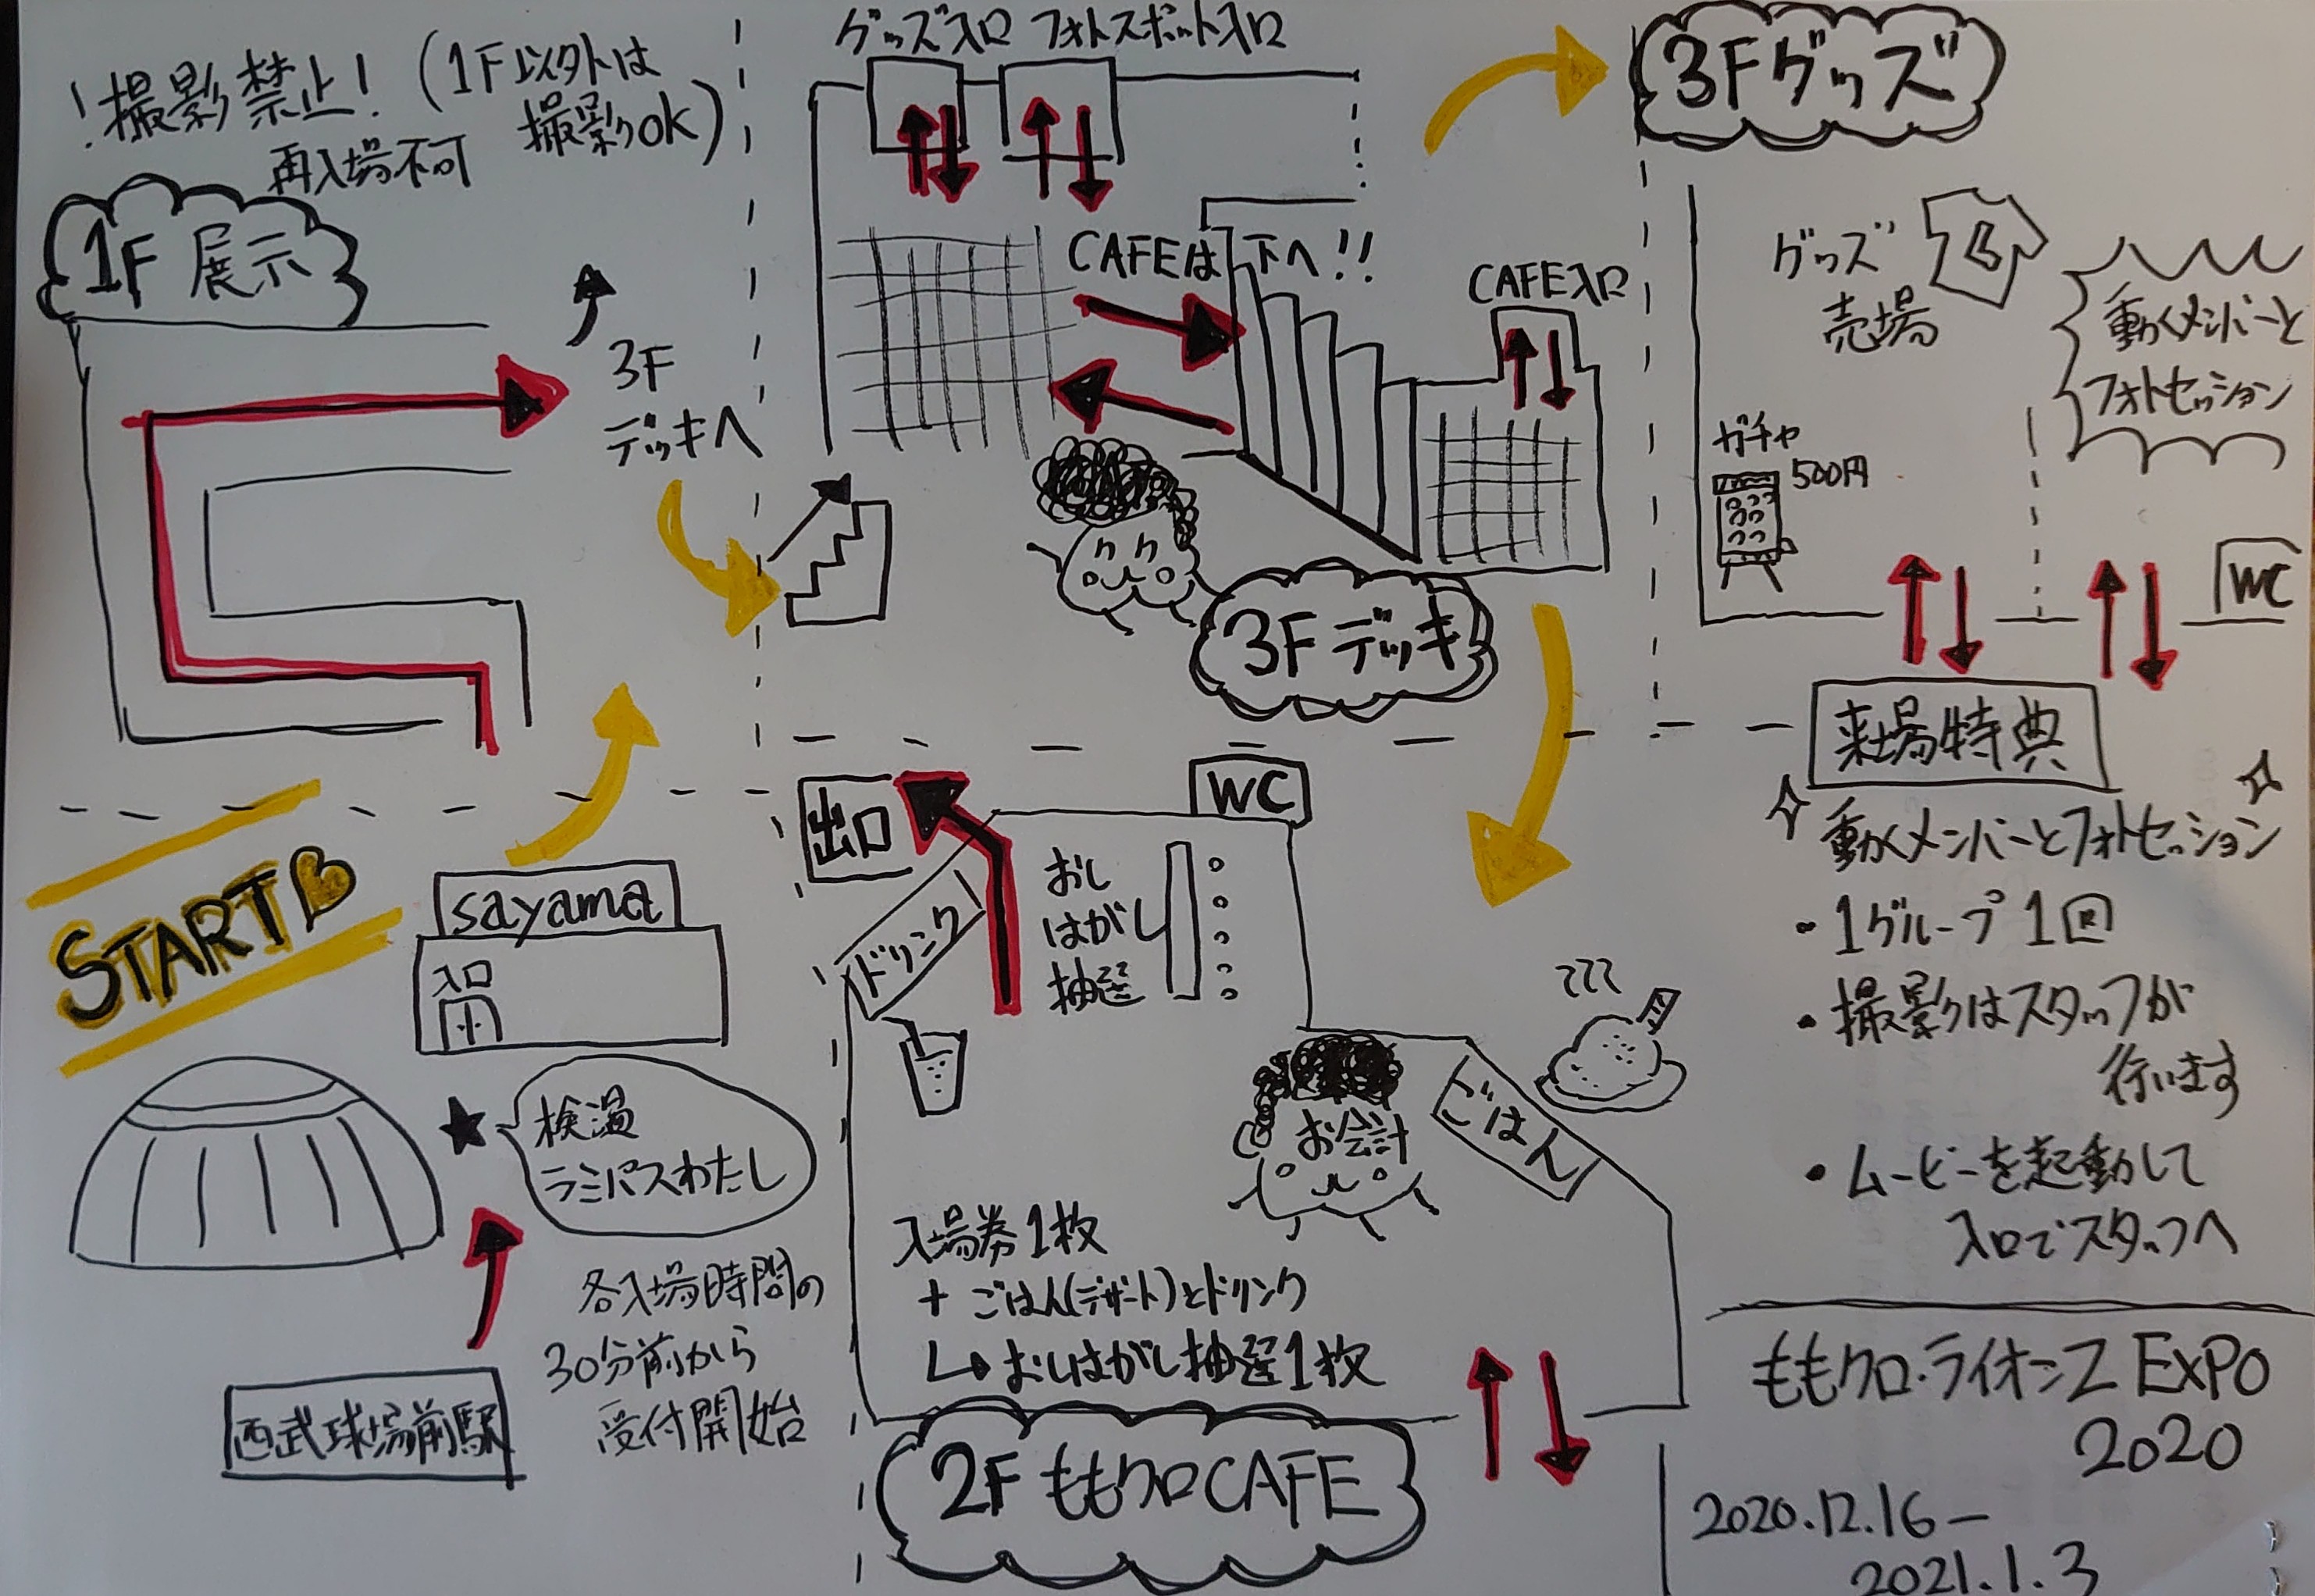 ！撮影禁止！（1F以外は
撮影OK）
再入場不可
1F 展示
3F
デッキへ
グッズ入口 フォトスポット入口
CAFEは下へ!!
CAFE入口
3F デッキ
3Fグッズ
グッズ
売場
動くメンバーと
フォトセッション
ガチャ
500円
WC
START
sayama
入口
検温
ラミパスわたし
各入場時間の
30分前から
受付開始
西武球場前駅
出口
WC
ドリンク
おし
はがし
抽選
お会計
ごはん
入場券1枚
+ ごはん(デザート)とドリンク
↳おしはがし抽選1枚
2F ももクロCAFE
来場特典
動くメンバーとフォトセッション
・1グループ1回
・撮影はスタッフが
行います
・ムービーを起動して
入口でスタッフへ
ももクロ・ライオンZ EXPO
2020
2020.12.16ー
2021.1.3